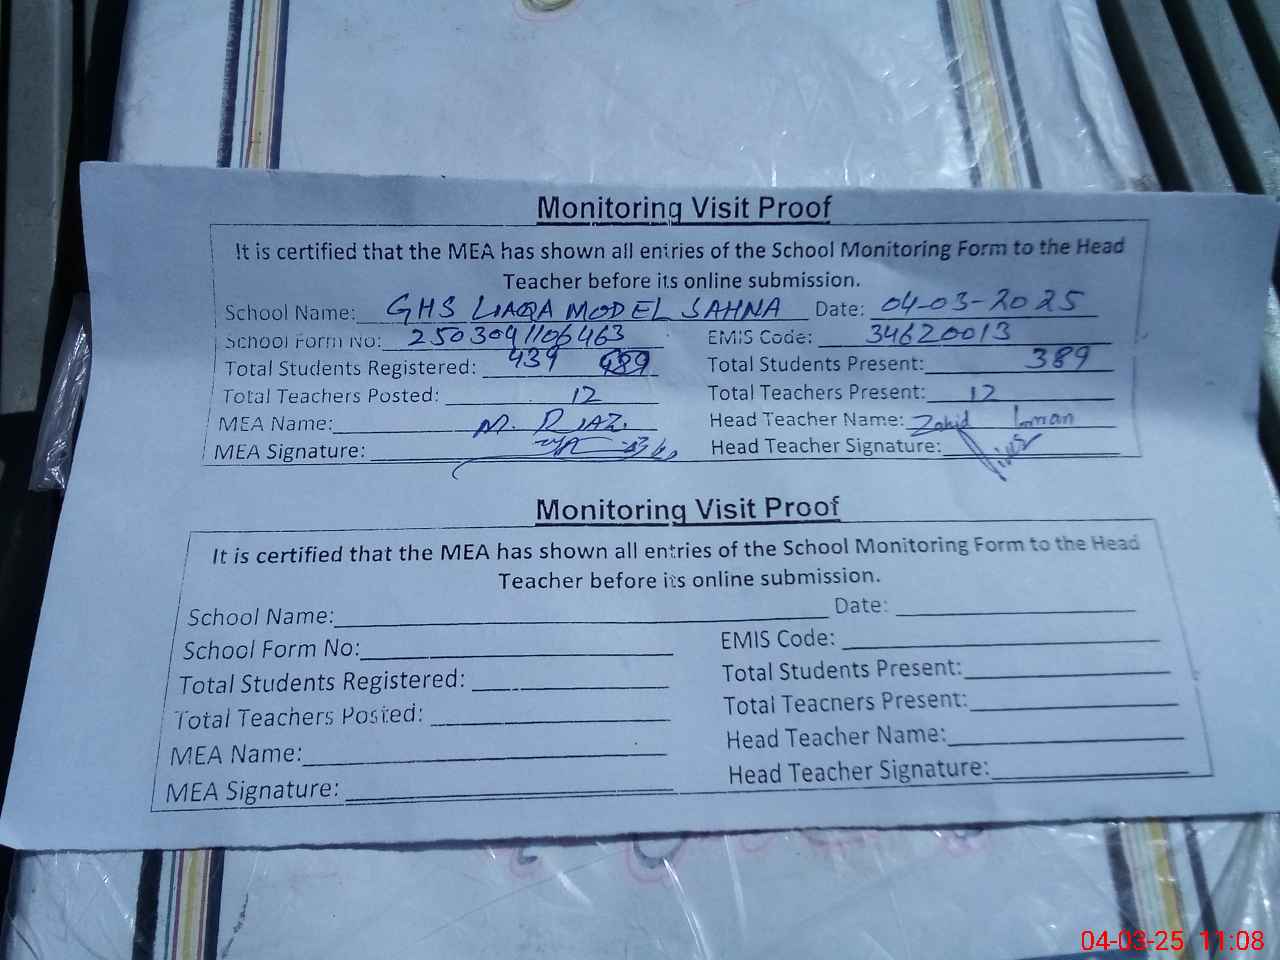 Monitoring Visit Proof
It is certified that the MEA has shown all entries of the School Monitoring Form to the Head
Teacher before its online submission.
School Name: GHS LIAQA MODEL SAHNA Date: 04-03-2025
School Form No: 2503091106463 EMIS Code: 34620013
Total Students Registered: 439 Total Students Present: 389
Total Teachers Posted: 12 Total Teachers Present: 12
MEA Name: M. RIAZ. Head Teacher Name: Zahid
MEA Signature: Head Teacher Signature:
Monitoring Visit Proof
It is certified that the MEA has shown all entries of the School Monitoring Form to the Head
Teacher before its online submission.
School Name: Date:
School Form No: EMIS Code:
Total Students Registered: Total Students Present:
Total Teachers Posted: Total Teachers Present:
MEA Name: Head Teacher Name:
MEA Signature: Head Teacher Signature:
04-03-25 11:08